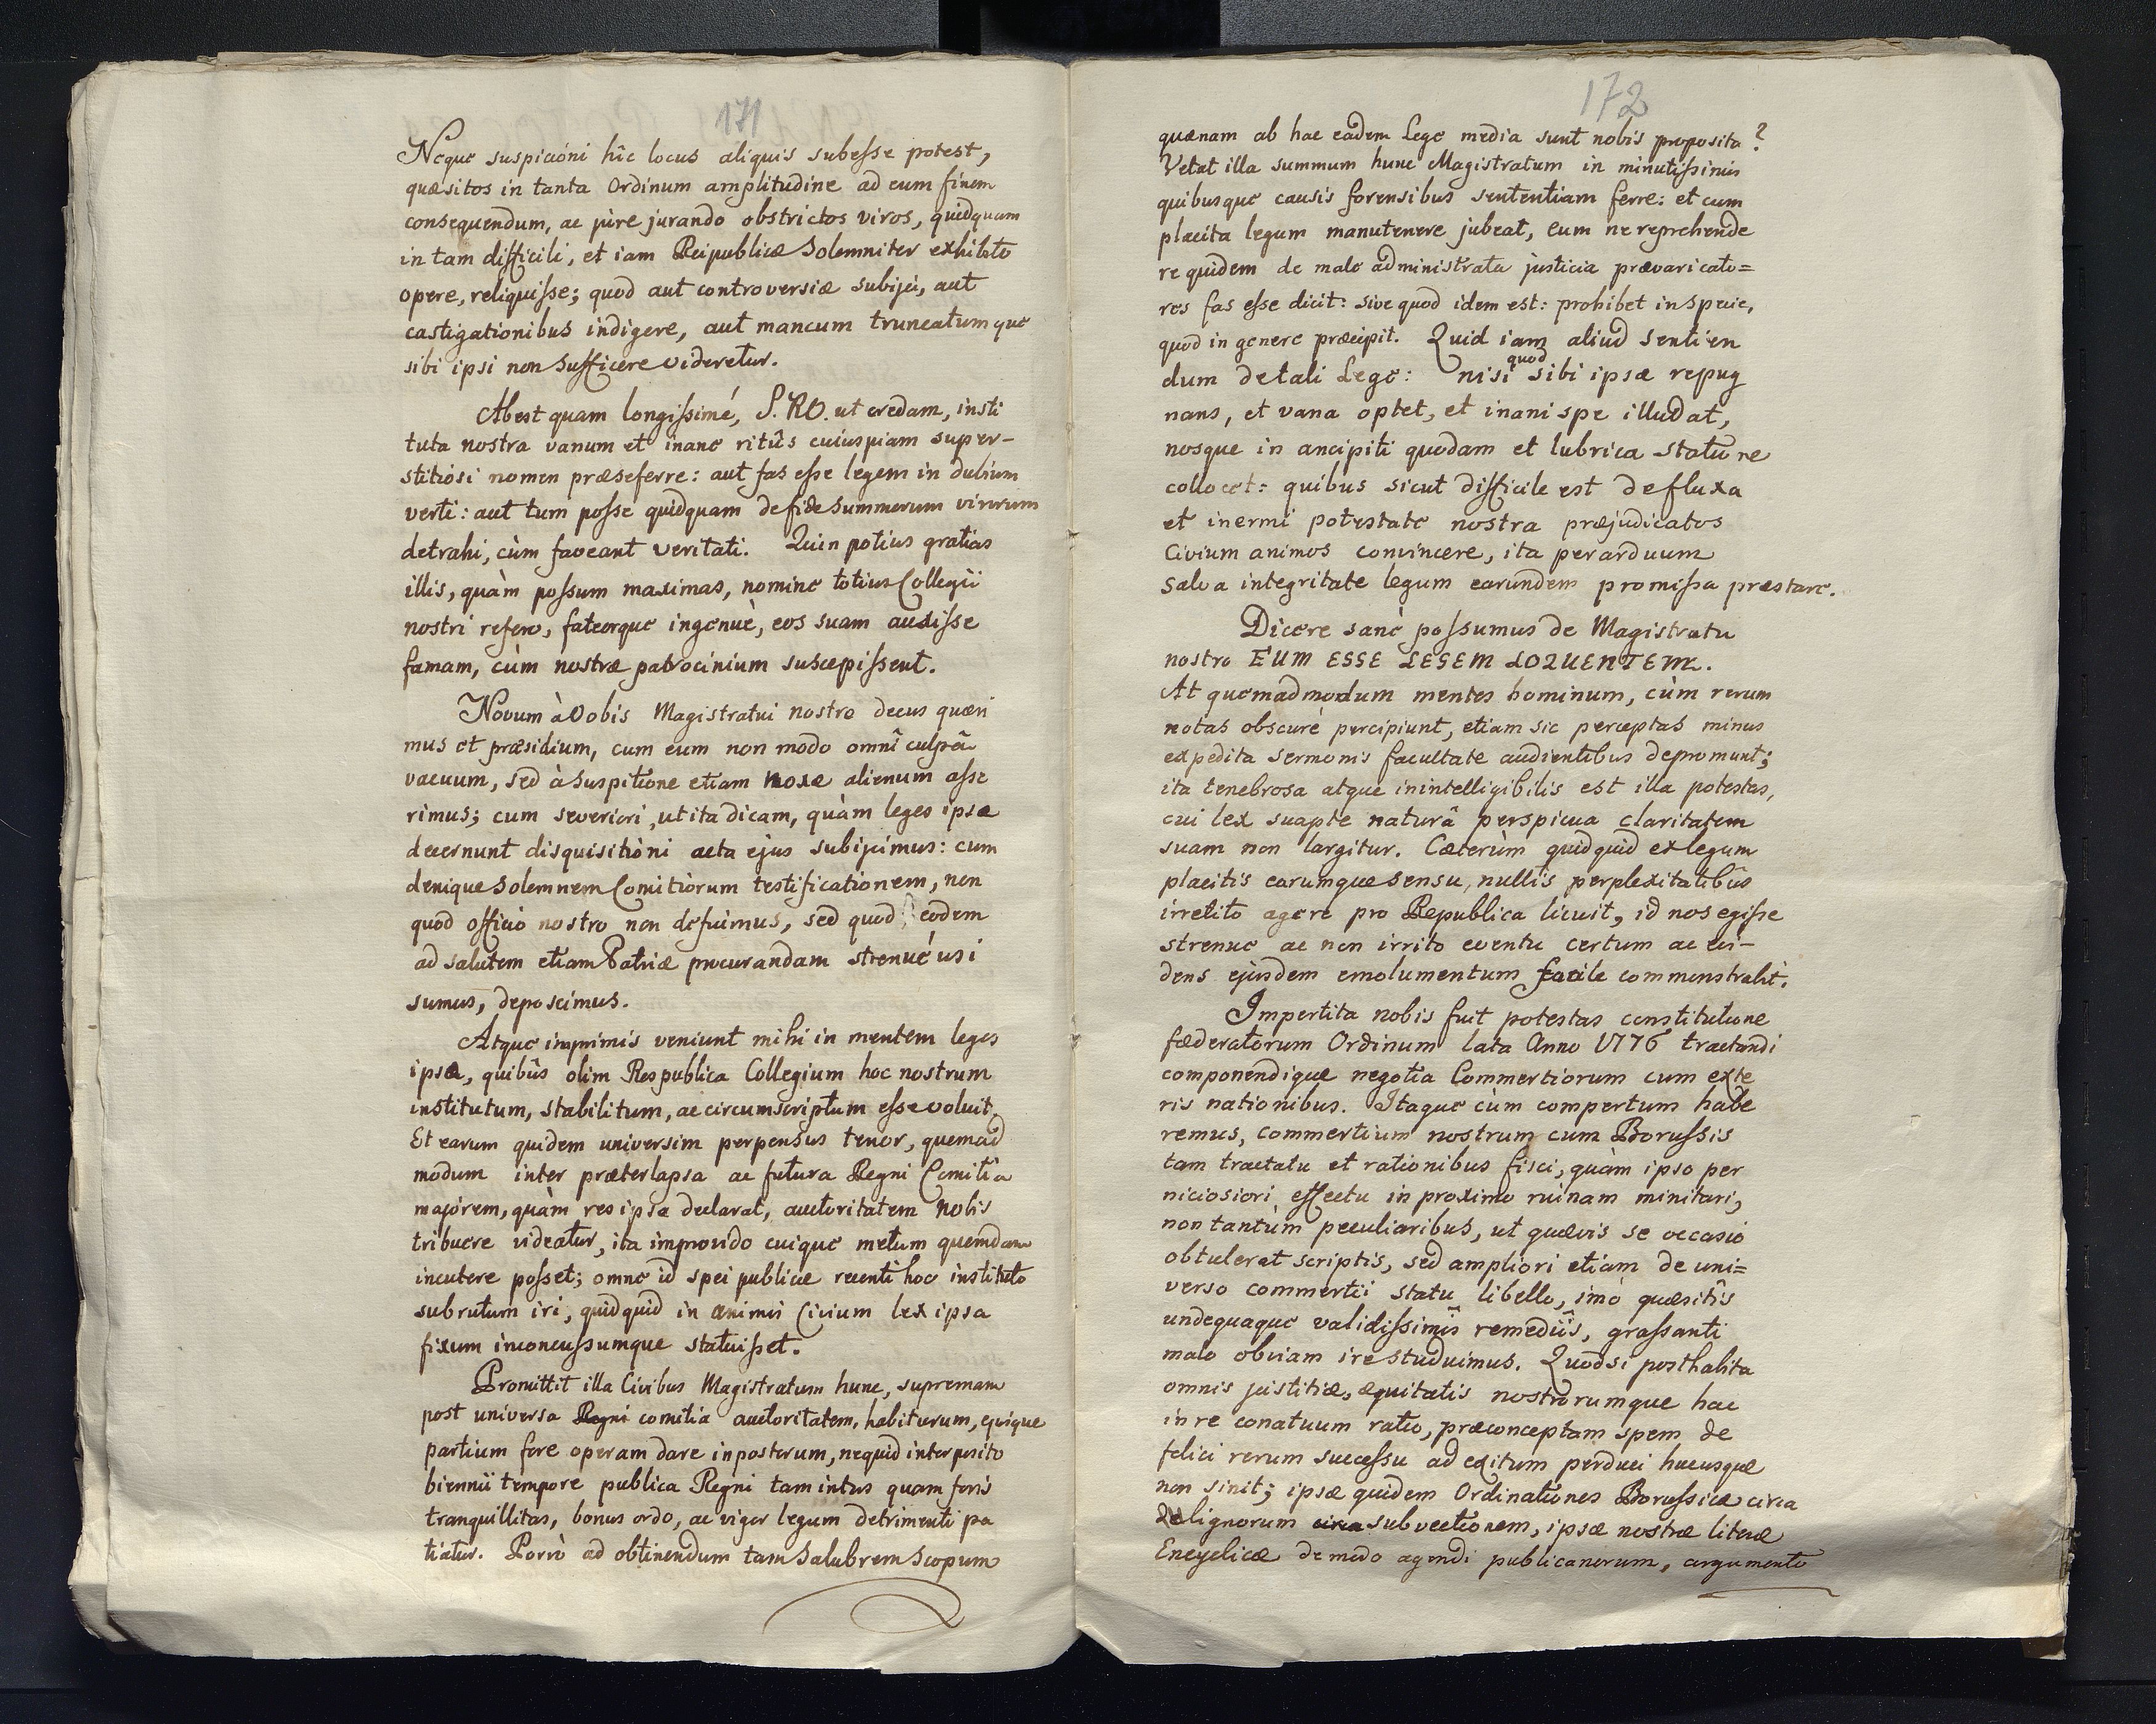 171
Neque suspicioni hîc locus aliquis subesse potest,
quæsitos in tanta Ordinum amplitudine ad eum finem
consequendum, ac jure jurando obstrictos viros, quidquam
in tam difficili, et iam Reipublicæ Solemniter exhibito
opere, reliquisse; quod aut controversiæ subijci, aut
castigationibus indigere, aut mancum truncatumque
sibi ipsi non sufficere videretur.
Abest quam longissimé, S. RO. ut credam, insti
tuta nostra vanum et inane ritûs cuiuspiam super-
stitiosi nomen præseferre: aut fas esse legem in dubium
verti: aut tum posse quidquam de fide summorum virorum
detrahi, cùm faveant veritati. Quin potius gratias
illis, quàm possum maximas, nomine totius Collegii
nostri refero, fateorque ingenuè, eos suam auxisse
famam, cùm nostræ patrocinium suscepissent.
Novum à Vobis Magistratui nostro decus quæri
mus et præsidium, cum eum non modo omnî culpâ
vacuum, sed à suspitione etiam noxæ alienum asse
rimus; cum severiori, ut ita dicam, quàm leges ipsæ
decernunt disquisitioni acta ejus subijcimus: cum
denique solemnem Comitiorum testificationem, non
quod officio nostro non defuimus, sed quod eodem
ad salutem etiam Patriæ procurandam strenué usi
sumus, deposcimus.
Atque imprimis veniunt mihi in mentem leges
ipsæ, quibûs olim Respublica Collegium hoc nostrum
institutum, stabilitum, ac circumscriptum esse voluit.
Et earum quidem universim perpensus tenor, quemad
modum inter præterlapsa ac futura Regni Comitia
majorem, quàm res ipsa declarat, auctoritatem nobis
tribuere videatur, ita improvido cuique metum quemdam
incutere posset; omne id spei publicæ recenti hoc instituto
subrutum iri, quidquid in animis Civium lex ipsa
fixum inconcussumque statuisset.
Promittit illa Civibus Magistratum hunc, supremam
post universa Regni comitia auctoritatem, habiturum, ejusque
partium fore operam dare in posterum, nequid interposito
biennii tempore publica Regni tam intus quam foris
tranquillitas, bonus ordo, ac vigor legum detrimenti pa
tiatur. Porrò ad obtinendum tam Salubrem Scopum
172
quænam ab hac eadem Lege media sunt nobis proposita?
Vetat illa summum hunc Magistratum in minutissimis
quibusque causis forensibus sententiam ferre: et cum
placita legum manutenere jubeat, eum ne reprehende
re quidem de male administrata justicia prævaricato=
res fas esse dicit: sive quod idem est: prohibet in specie,
quod in genere præcipit. Quid iam aliud sentien
dum de tali Lege: nisi quod sibi ipsæ repug
nans, et vana optet, et inani spe illudat,
nosque in ancipiti quodam et lubrica statione
collocet: quibus sicut difficile est defluxa
et inermi potestate nostra præjudicatos
Civium animos convincere, ita perarduum
salva integritate legum earundem promissa præstare.
Dicere sanè possumus de Magistratu
nostro EUM ESSE LEGEM LOQUENTEM.
At quemadmodum mentes hominum, cùm rerum
notas obscuré percipiunt, etiam sic perceptas minus
expedita sermonis facultate audientibus depromunt;
ita tenebrosa atque inintelligibilis est illa potestas,
cui lex suapte naturâ perspicua claritatem
suam non largitur. Cæterùm quidquid ex legum
placitis earumque sensu, nullis perplexitatibûs
irretito agere pro Republica licuit, id nos egisse
strenue ac non irrito eventu certum ac evi-
dens ejusdem emolumentum facile commonstrabit.
Impertita nobis fuit potestas constitutione
fœderatorum Ordinum lata Anno 1776 tractandi
componendique negotia Commertiorum cum exte
ris nationibus. Itaque cùm compertum habe
remus, commertium nostrum cum Borussis
tam tractatu et rationibus fisci, quàm ipso per
niciosiori effectu in proximo ruinam minitari,
non tantùm peculiaribus, ut quævis se occasio
obtulerat scriptis, sed ampliori etiam de uni=
verso commertii statu libello, imò quæsitîs
undequaque validissimîs remediîs, grassanti
malo obviam ire studuimus. Quodsi posthabita
omnis justitiæ, æquitatis nostrorumque hac
in re conatuum ratio, præconceptam spem de
felici rerum successu ad exitum perduci hucusque
non sinit; ipsæ quidem Ordinationes Borussicæ circa
lignorum subvectionem, ipsæ nostræ literæ
Encyclicæ de modo agendi publicanorum, argumento